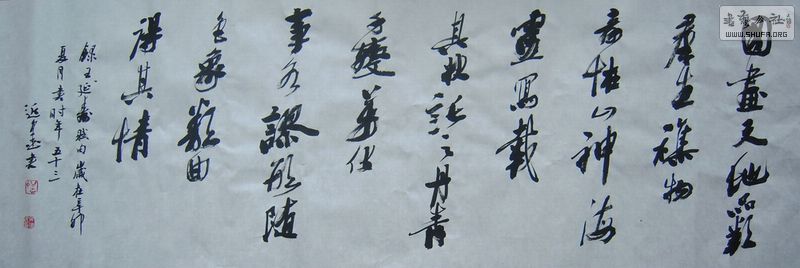 圖畫天地品類
羣生襍物
奇怪山神海
靈寫載
其狀託之丹青
千變萬化
事各謬形隨
色象類曲
得其情
錄王延壽賦句 歲在辛卯
夏月 时年五十三
书法公社
WWW.SHUFA.ORG